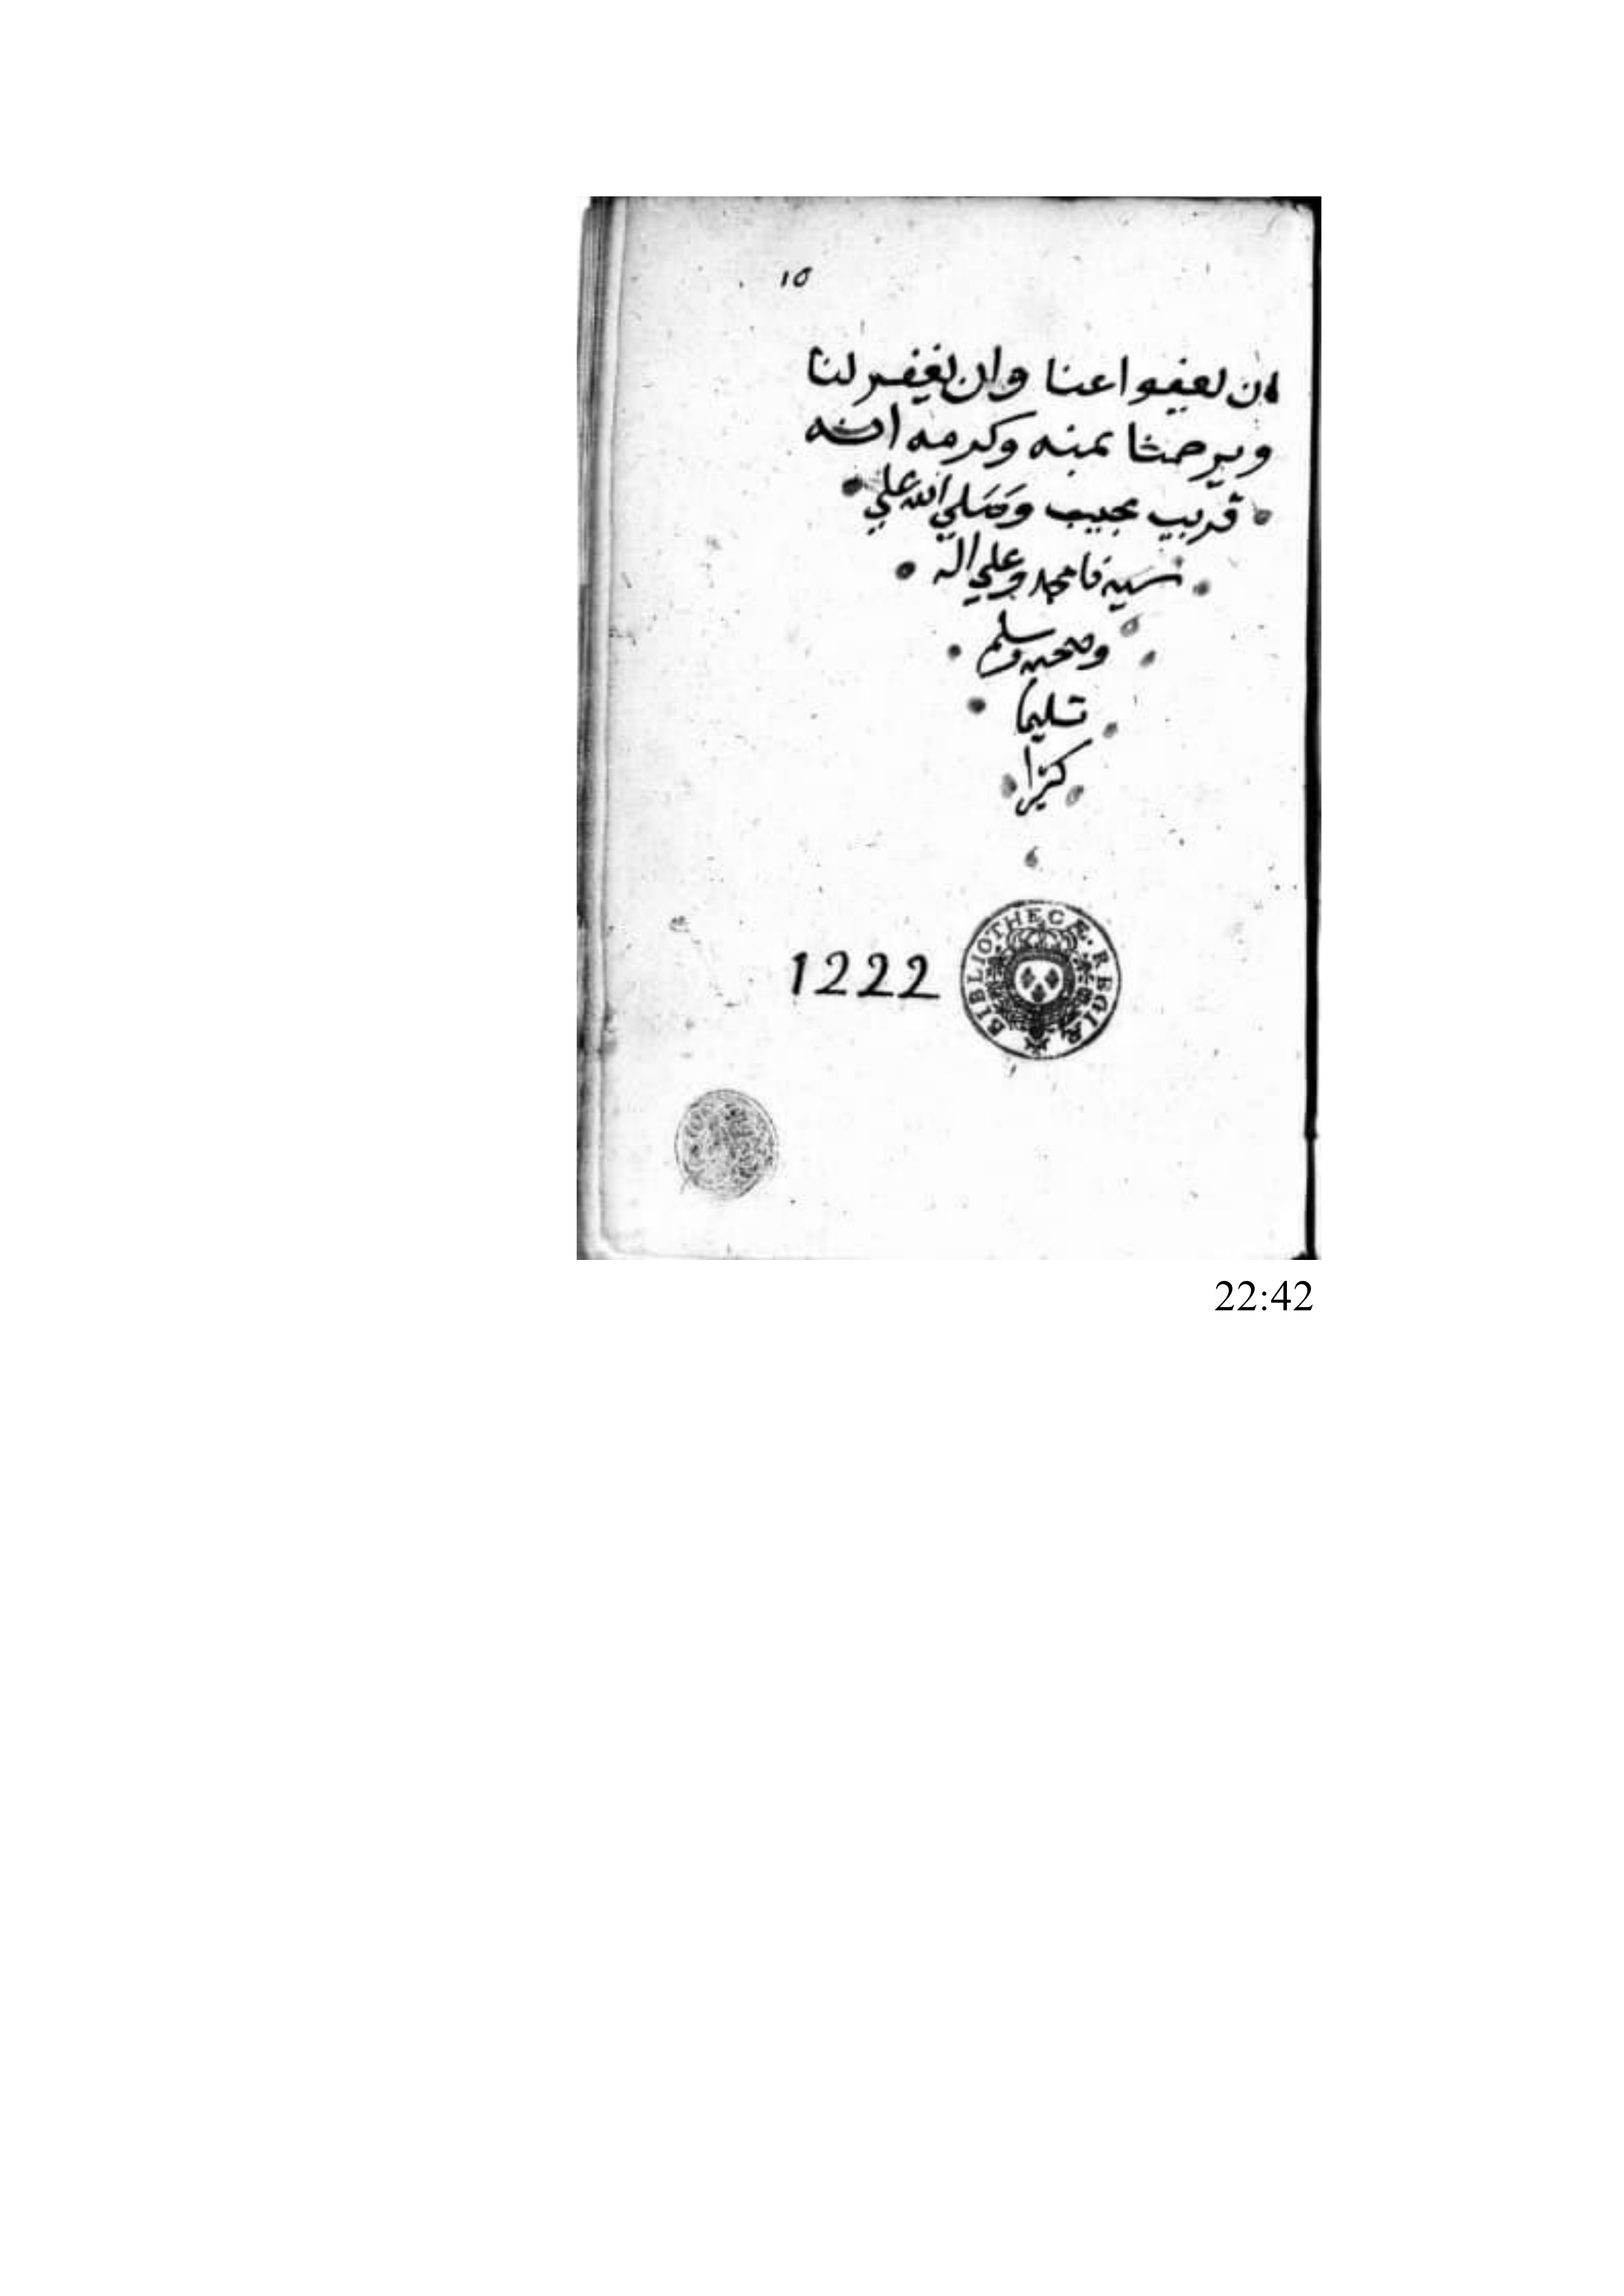 10
ان يعفوا عنا وان يغفر لنا
ويرحمنا بمنه وكرمه انه
قريب مجيب وصلي الله علي
سيدنا محمد وعلي اله
وصحبه وسلم
تسليما
كثيرا
1222
BIBLIOTHECÆ REGIÆ
22:42